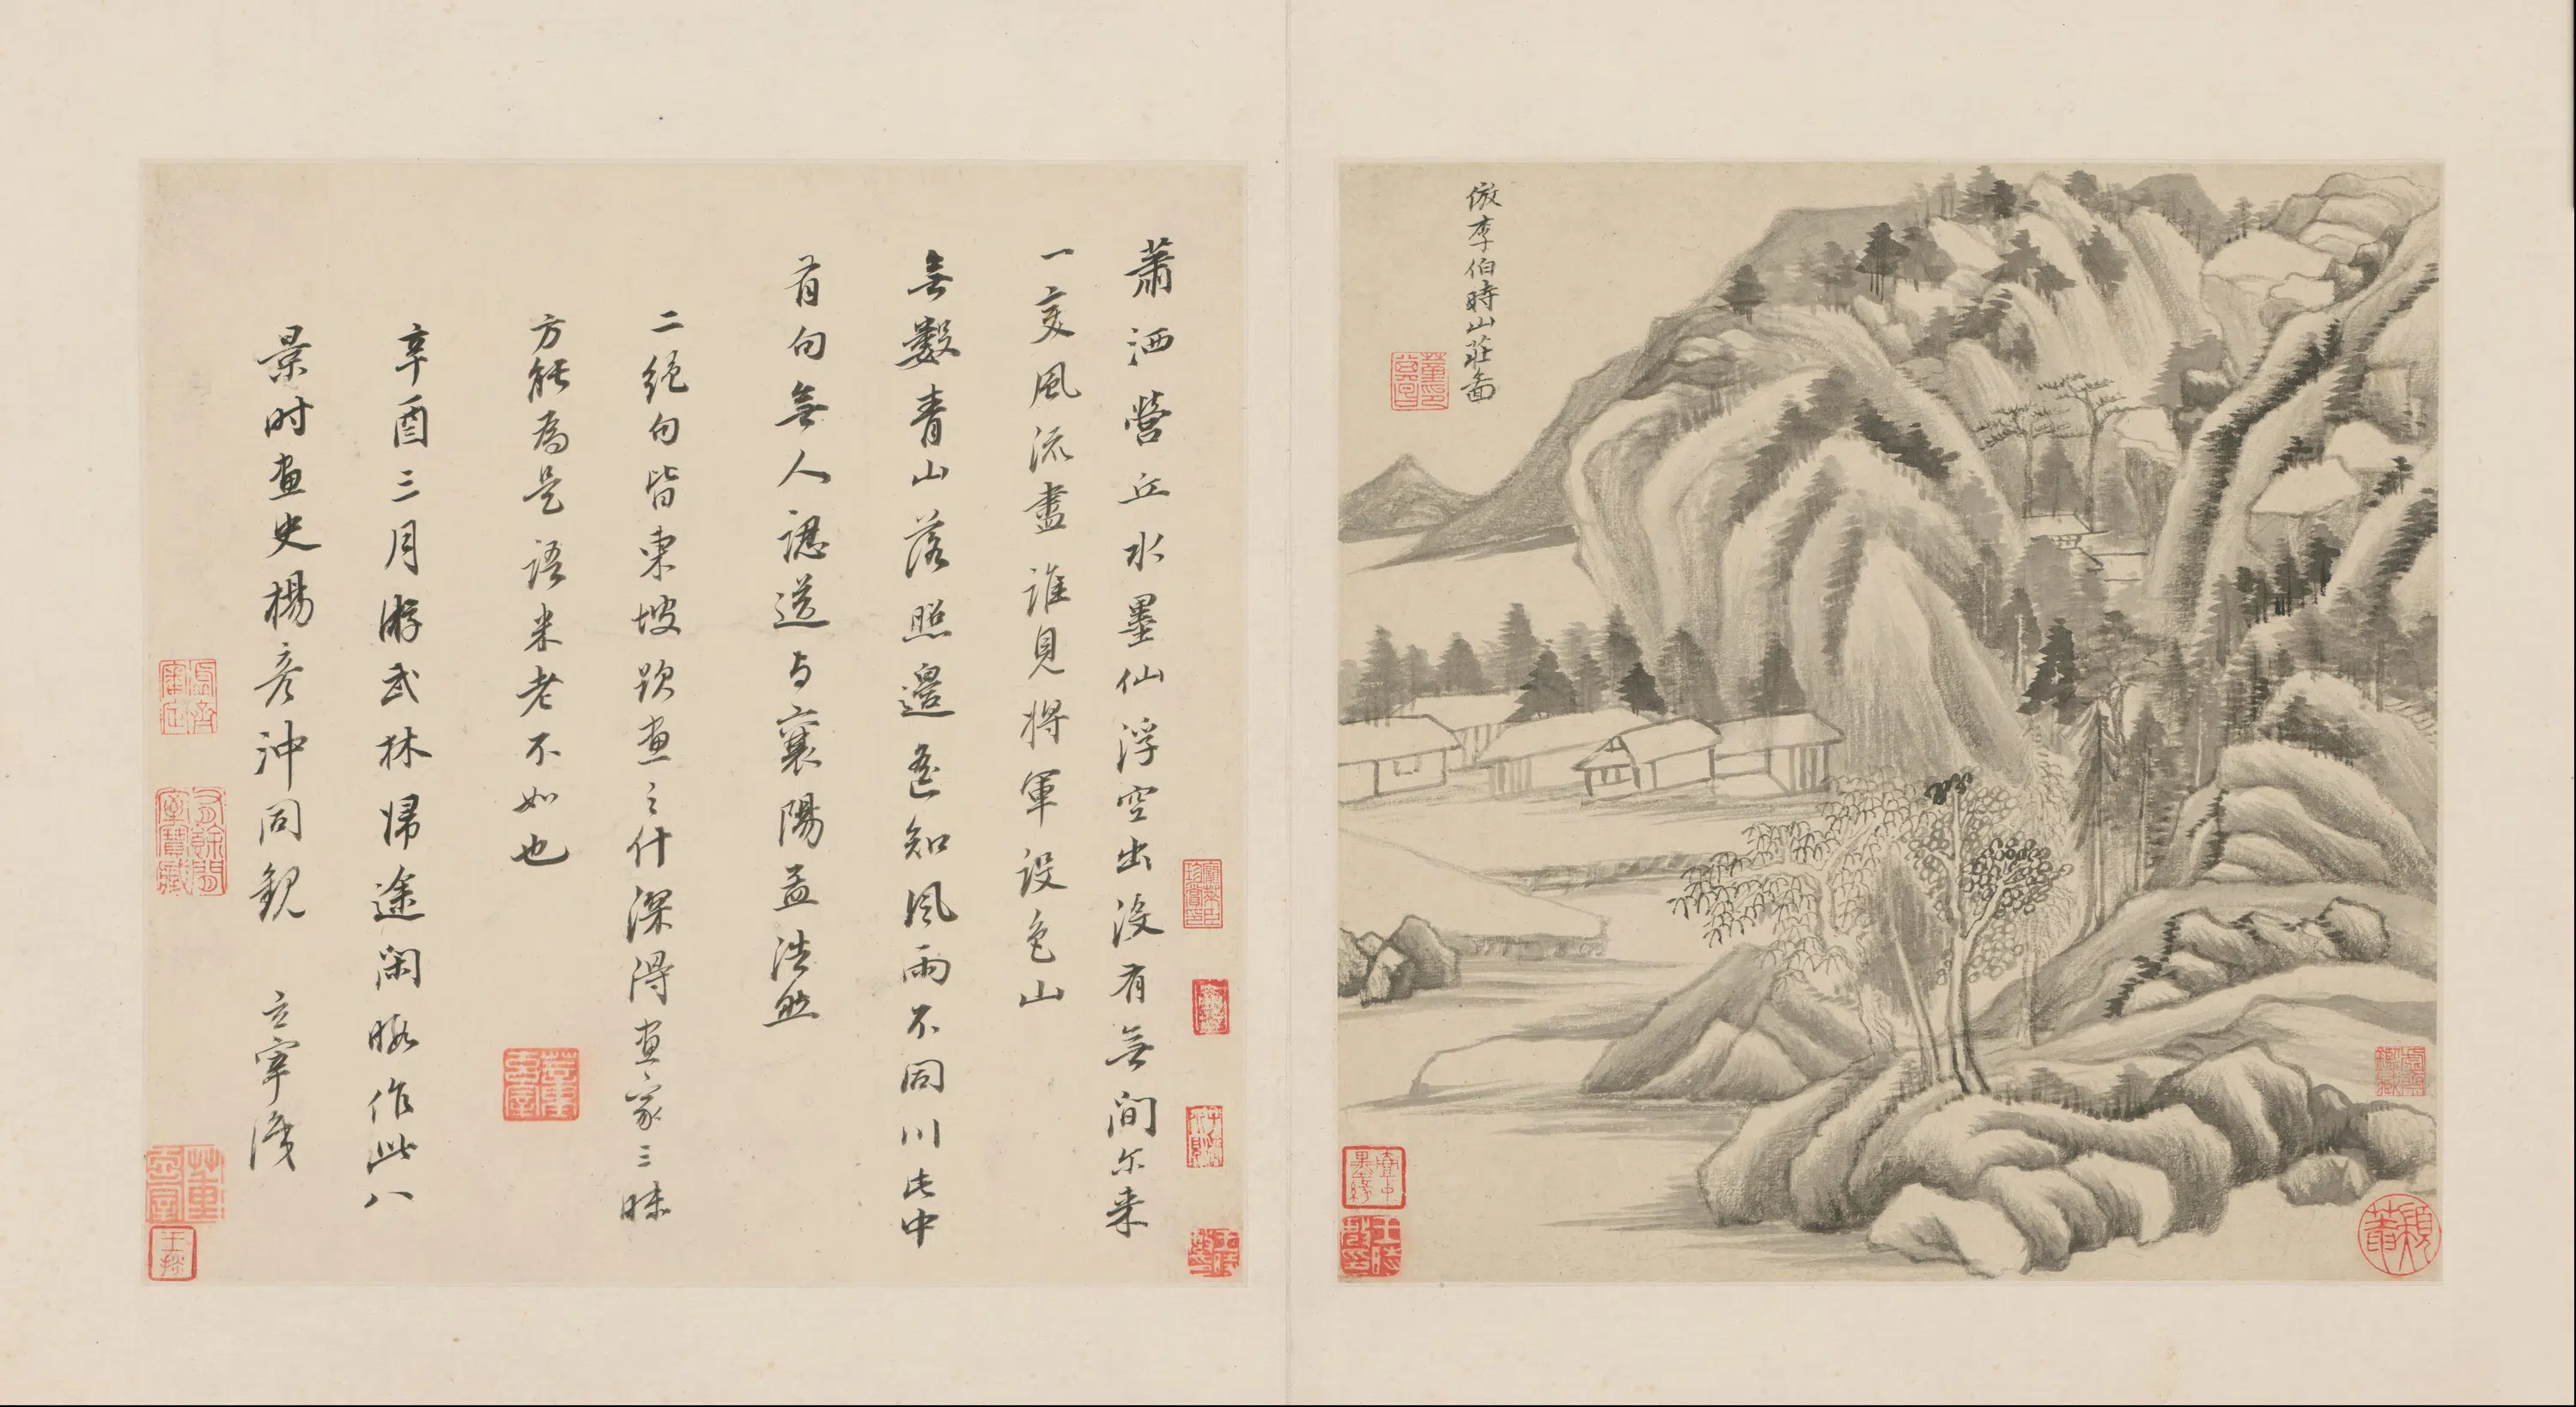 倣李伯時山莊圖
蕭洒營丘水墨仙浮空出沒有無間尓来
一變風流盡誰見將軍設色山
無數青山落照邊遙知風雨不同川此中
有句無人認送与襄陽孟浩然
二絕句皆東坡跋畫之什深得畫家三昧
方能為是語米老不如也
辛酉三月游武林歸途閑暇作此八
景时畫史楊彥沖同觀 玄宰識